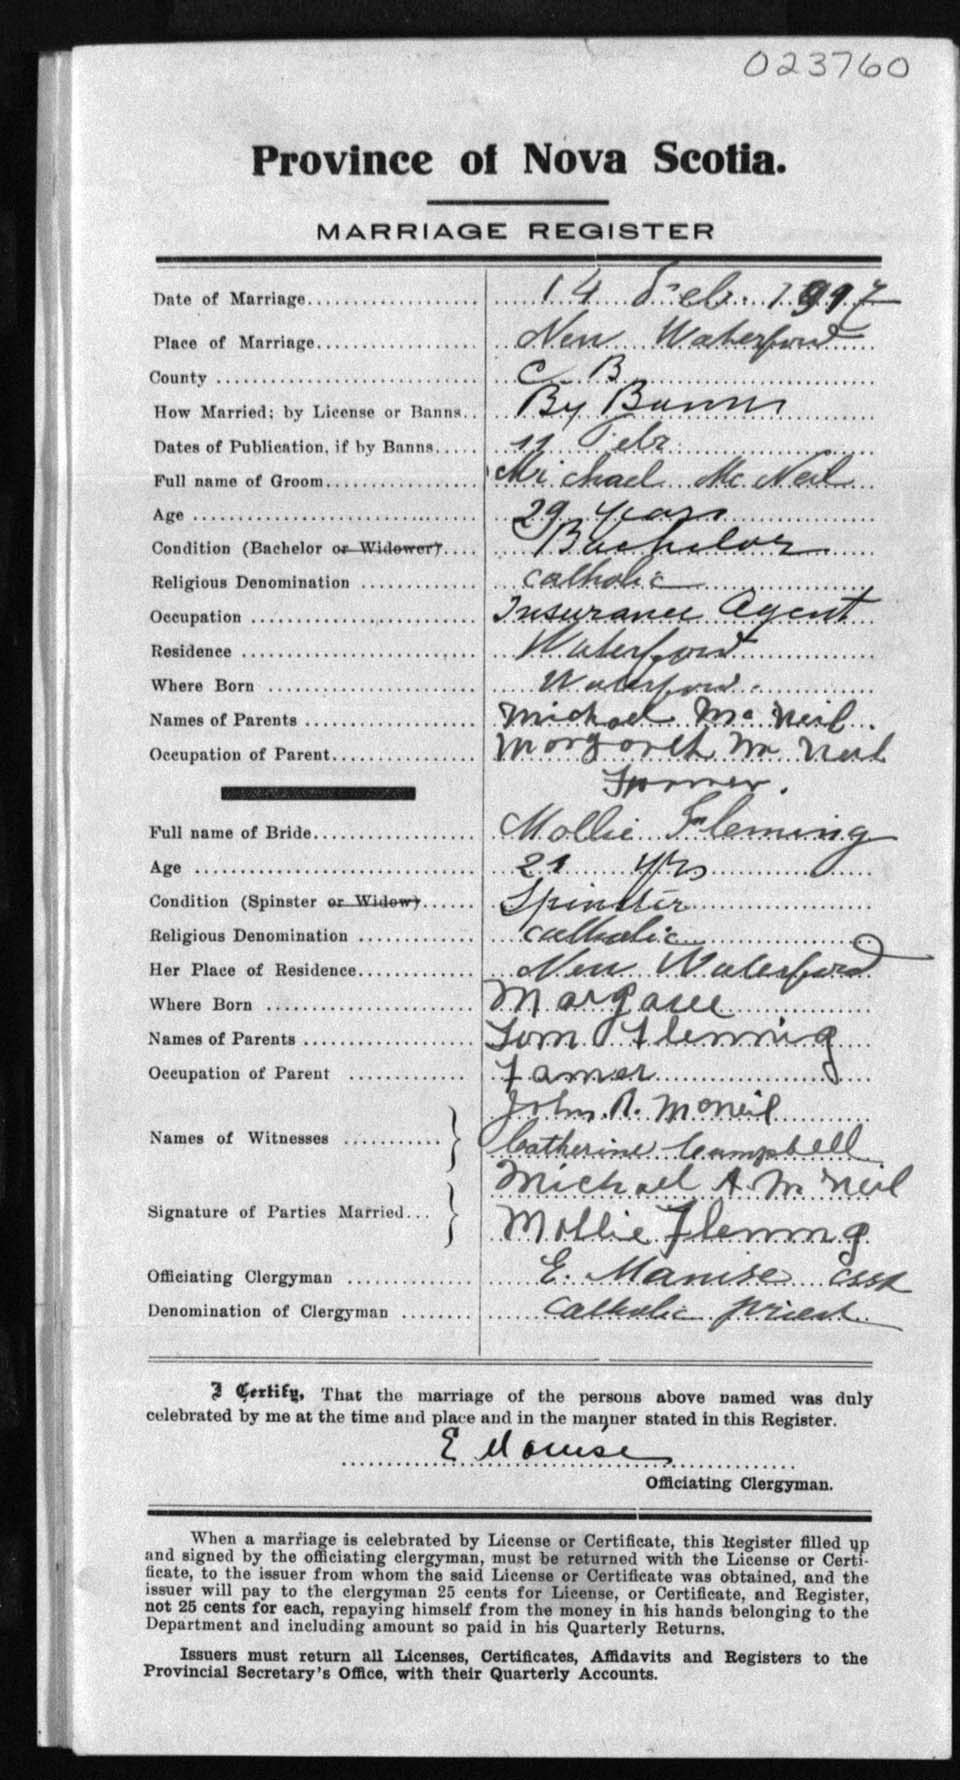 023760
Province of Nova Scotia.
MARRIAGE REGISTER
Date of Marriage 14 Feb. 1917
Place of Marriage New Waterford
County C B
How Married; by License or Banns By Banns
Dates of Publication, if by Banns 11 Febr
Full name of Groom Michael Mc Neil
Age 29 years
Condition (Bachelor or Widower) Bachelor
Religious Denomination catholic
Occupation Insurance Agent
Residence Waterford
Where Born Waterford
Names of Parents Michael Mc Neil
Occupation of Parent Margareth Mc Neil
Farmer.
Full name of Bride Mollie Fleming
Age 21 yrs
Condition (Spinster or Widow) Spinster
Religious Denomination catholic
Her Place of Residence New Waterford
Where Born Margaree
Names of Parents Tom Flemnig
Occupation of Parent Famer
John R. McNeil
Names of Witnesses
Catherine Campbell
Michael A. Mc Neil
Signature of Parties Married
Mollie Fleming
Officiating Clergyman E. Manise cssr
Denomination of Clergyman Catholic priest
I Certify, That the marriage of the persons above named was duly
celebrated by me at the time and place and in the manner stated in this Register.
E Manise
Officiating Clergyman.
When a marriage is celebrated by License or Certificate, this Register filled up
and signed by the officiating clergyman, must be returned with the License or Certi-
ficate, to the issuer from whom the said License or Certificate was obtained, and the
issuer will pay to the clergyman 25 cents for License, or Certificate, and Register,
not 25 cents for each, repaying himself from the money in his hands belonging to the
Department and including amount so paid in his Quarterly Returns.
Issuers must return all Licenses, Certificates, Affidavits and Registers to the
Provincial Secretary's Office, with their Quarterly Accounts.